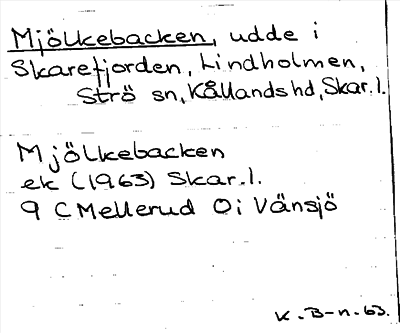 Mjölkebacken, udde i
Skarefjorden, Lindholmen,
Strö sn, Kållands hd, Skar.l.
Mjölkebacken
ek (1963) Skar.l.
9 C Mellerud 0 i Vänsjö
K. B-n. 63.